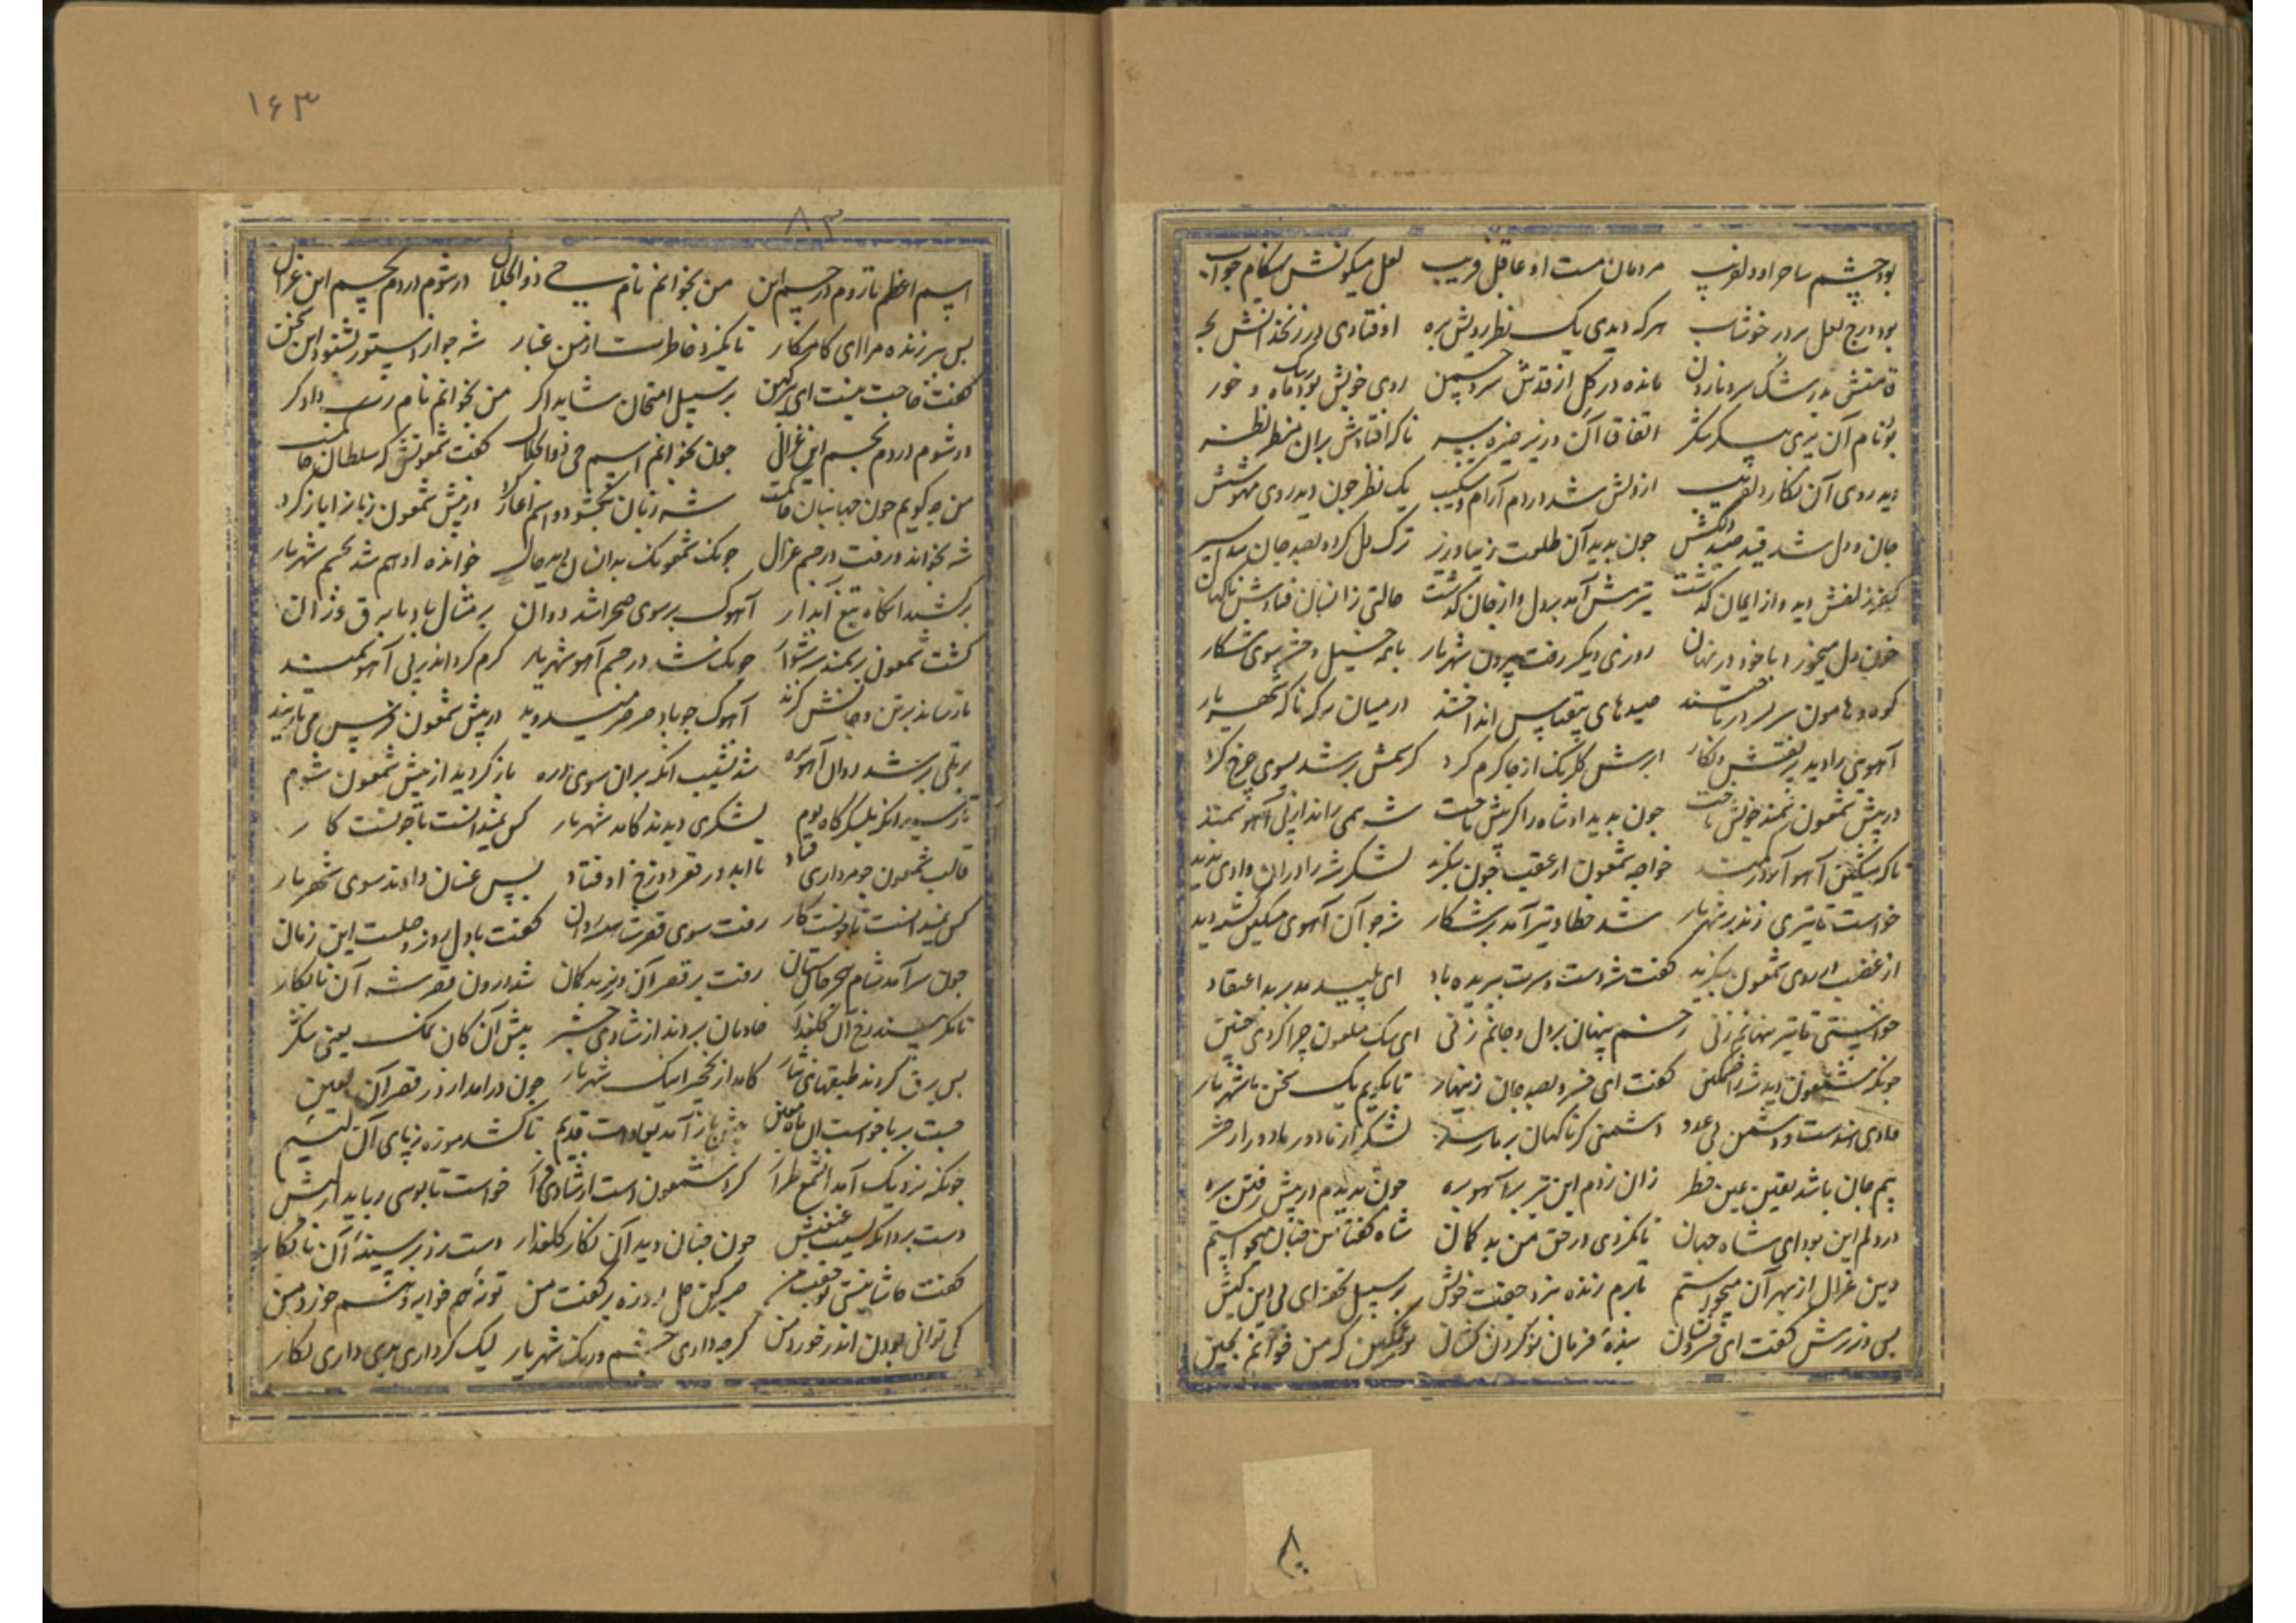 بود چشم ساحر او دلفریب مردمان مست او عاقل فریب لعل میکونش هنکام جواب
بود درج لعل پر در خوشاب هر که دیدی یک نظر رویش بره اوفتادی در زنخدانش بچه
قامتش بد رشک سرو ناردن مانده در کل از قدش سرو چمن روی خوبش بود رشک ماه و خور
بود نام آن پری پیکر اتفاقا آن وزیر خیره سر ناکه افتادش بران منظر نظر
دید روی آن نکار دلفریب از دلش شد در دم آرام و شکیب یک نظر چون دید روی مهوشش
جان و دل شد قید چون بدید آن طلعت زیبا وزیر ترک دل کرد و بصد جان شد اسیر
کفر زلفش دید و از ایمان کذشت تیرش آمد بر دل و از جان کذشت حالتی زانسان فتادش ناکهان
خون دل میخورد با خود در نهان روزی دیکر رفت بیرون شهریار با همه خیل و حشم سوی شکار
کوه و هامون سر بسر درتاختند صیدهای بیقیاس انداختند در میان که ناکه شهریار
آهویی را دید پر نقش و نکار ابرش کلرنک از جا کرم کرد کز سمش بر شد بسوی چرخ کرد
در پیش شمعون سمند خویش تاخت چون بدید او شاه را کز پیش تاخت شه همی راند از پی آهو سمند
خواجه شمعون از عقب چون بنکرید لشکر شه را در ان وادی ندید
خواست تا تیری زند بر شهریار شد خطا و تیر آمد بر شکار شه چو آن آهوی مسکین کشته دید
از غضب بر روی شمعون بنکرید کفت شه دست و سرت ببریده باد ای پلید مدبر بد اعتقاد
خواستی تا تیر پنهانم زنی زخم پنهان بر دل و جانم زنی ای سک ملعون چرا کردی چنین
چونکه شمعون دید شه را خشمکین کفت ای خسرو بصد جان زینهار تا بکویم یک سخن با شهریار
وادی است و دشمن بی عدد دشمنی کر ناکهان بر ما رسد
بیم جان باشد یقین عین خطر زان زدم این تیر بر آهو بره چون بدیدم در پیش رفتن سره
در دلم این بود ای شاه جهان تا نکردی در حق من بد کمان شاه کفتا من چنان میخواستم
وین غزال از بهر آن میخواستم تا برم زنده بنزد جفت خویش بر سبیل تحفه ای بی دین کیش
پس وزیرش کفت ای بنده فرمان تو کردن کشان تو که من خوانم بچین
۱۶۳
۸۳
اسم اعظم تا روم در جسم این من بخوانم نام حی ذوالجلال در شوم در دم بجسم این غزال
پس بر زنده مرا ای کامکار تا نکیرد خاطرت از من غبار شه چو از دستور بشنود این سخن
کفت حاجت نیست ای بر سبیل امتحان شاید اکر من بخوانم نام رب دادکر
در شوم در دم بجسم این غزال چون بخوانم اسم حی ذوالجلال کفت شمعونش که سلطان
من چه کویم چون شه زبان بکشود و اسم آغاز کرد در پیش شمعون زبانرا باز کرد
شه بخواند و رفت در جسم غزال چونکه شمعون بدانسان دید حال خوانده او هم شد بجسم شهریار
برکشید آنکاه تیغ آبدار آهوک بر سوی صحرا شد دوان بر مثال باد یا برق وزان
کشت شمعون بر سمند شه سوار چونکه شد در جسم آهو شهریار کرم کرد اندر پی آهو سمند
تا رساند بر تن و جانش کزند آهوک چو باد صرصر میدوید در پیش شمعون فرس می
بر تلی بر شد روان آهو بره شد نشیب آنکه بران سوی دره باز کردید از پیش شمعون شوم
لشکری دیدند کامد شهریار کس نمیدانست تا چونست کار
قالب شمعون چو مرداری فتاد تا ابد در قعر دوزخ اوفتاد پس عنان دادند سوی شهریار
کس نمیدانست تا چونست کار رفت سوی قصر کفت با دل روز وصلست این زمان
چون سر آمد شام رفت بر قصر آن وزیر بدکمان شد درون قصر شه آن نابکار
تا نکر بیند رخ آن کلعذار خادمان بردند از شادی خبر پیش آن کان نمک یعنی شکر
پس برون کردند طبقهای نثار کامد از نخچیر اینک شهریار چون درامد از در قصر آن لعین
جست بر پا خواست آن ماه معین پیش باز آمد بعادت قدیم تا کشد موزه ز پای آن لئیم
چونکه نزدیک آمد آن شمع طراز کرد شمعون دست از شادی فراز خواست تا بوسی رباید از لبش
دست برد آنکه بسیب غبغبش چون چنان دید آن نکار کلعذار دست زد بر سینه آن نابکار
کفت حاشا نیستی تو جفت من صبر کن چل روزه بر کفت من
کی توانی بودن اندر خورد من کرچه داری چشم و رنک شهریار لیک کرداری بدی داری نکار
۸